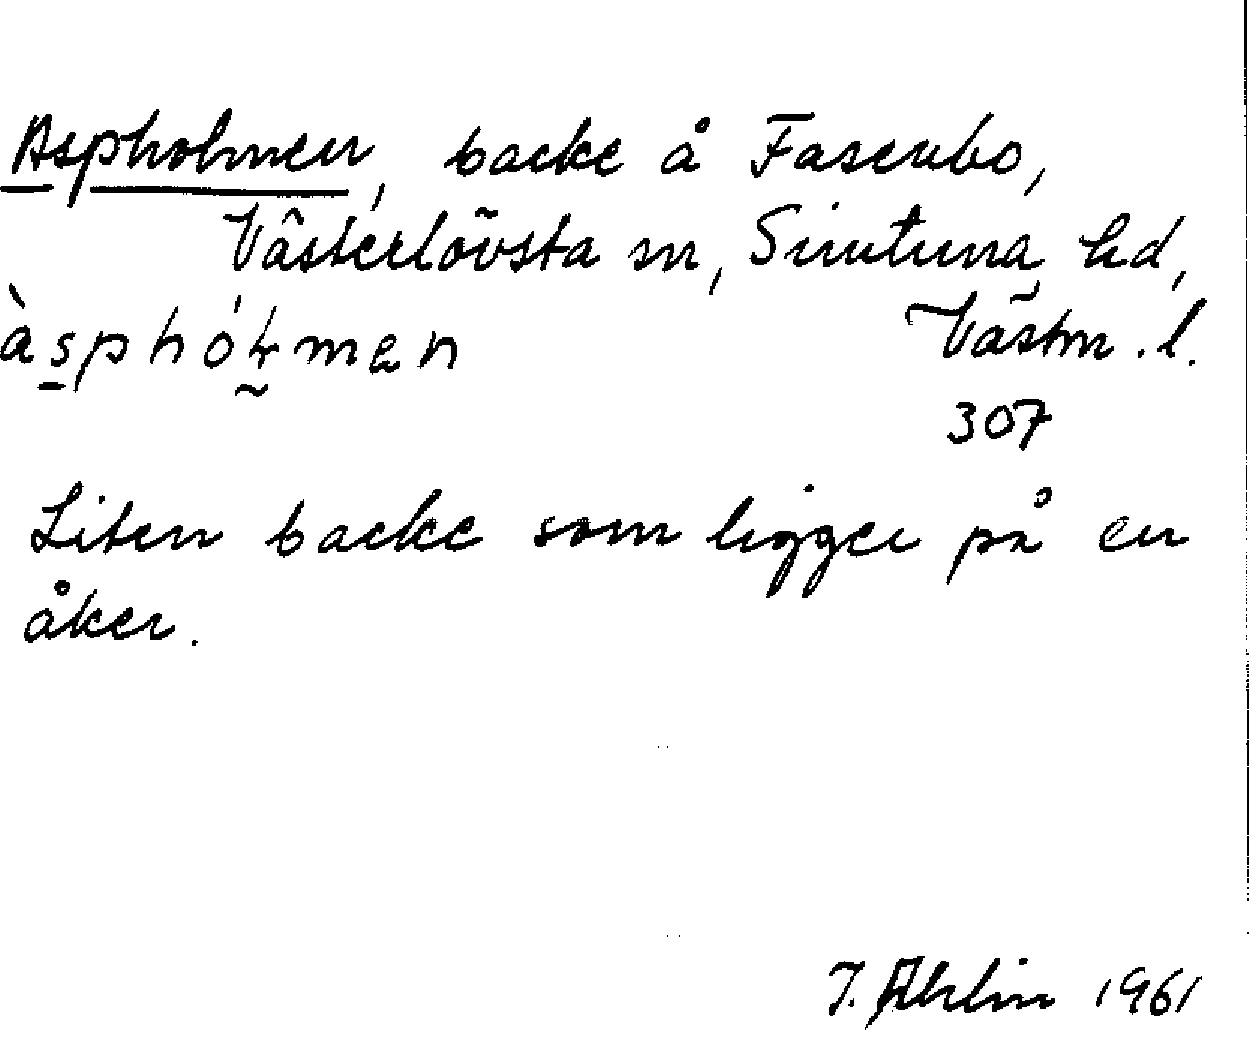 Aspholmen, backe å Fasenbo,
Västerlövsta sn, Simtuna hd,
Västm. l.
àsphóɫmən
307
Liten backe som ligger på en
åker.
J. Ahlin 1961